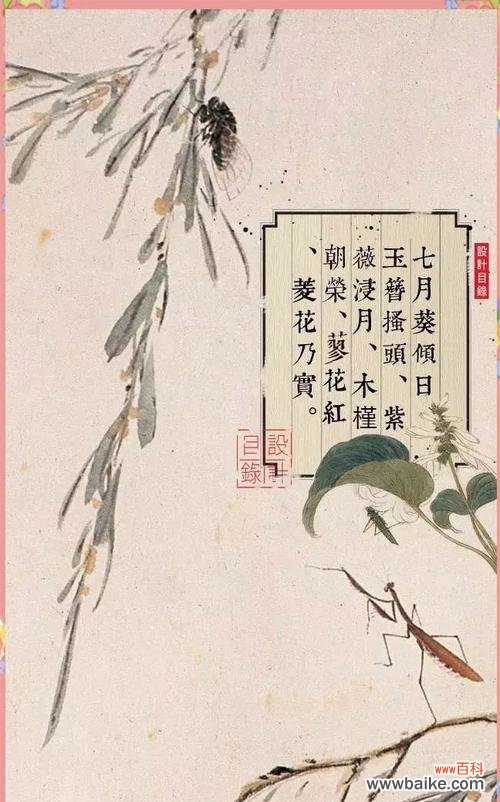 七月葵傾日
玉簪搔頭、紫
薇浸月、木槿
朝榮、蓼花紅
、菱花乃實。
設計目錄
設計
目錄
www百科
www.baike.com